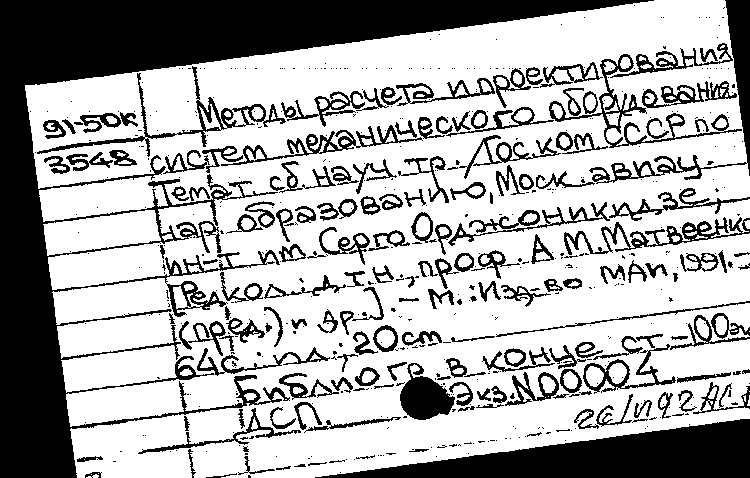 91-50к
3548
Методы расчета и проектирования
систем механического оборудования:
Темат. сб. науч. тр. / Гос. ком СССР по
нар. образованию, Моск. авиац.
ин-т им. Серго Орджоникидзе;
[Редкол.: д.т.н., проф. А.М. Матвеенко
(пред.) и др.]. - М.: Изд-во МАИ, 1991. -
64с.: ил.; 20см.
Библиогр. в конце ст. - 100эк
ДСП. Экз. N00004